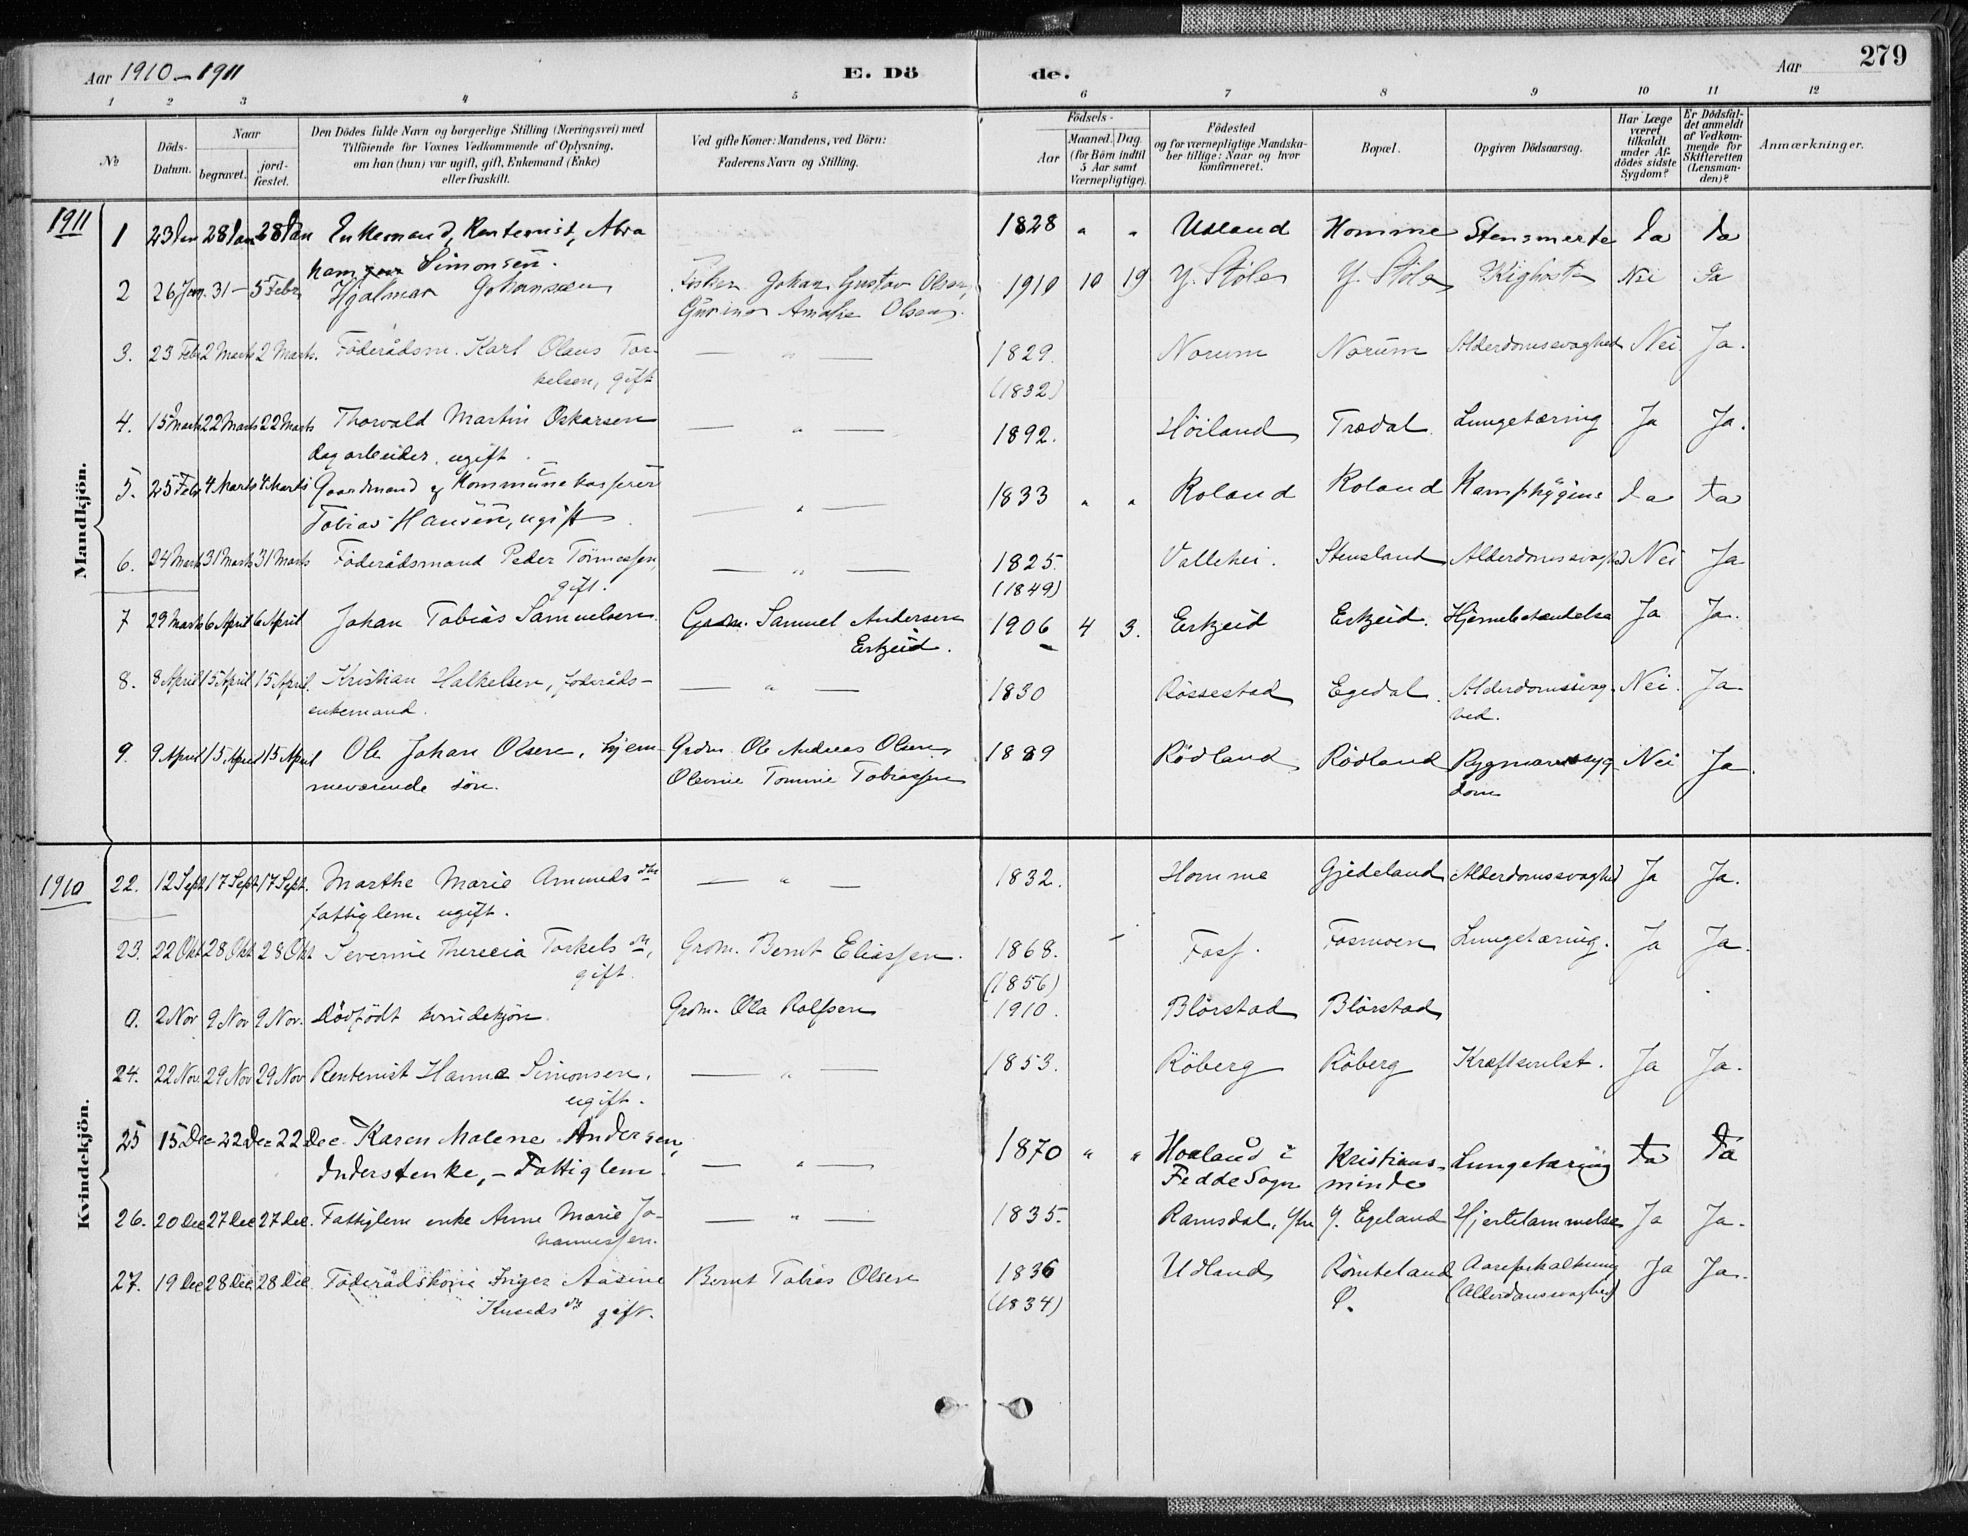 Aar 1910-1911 E. Dö de. Aar 279
1 2 3 4 5 6 7 8 9 10 11 12
№
Döds-Datum.
Naar begravet. jord-fæstet.
Den Dödes fulde Navn og borgerlige Stilling (Næringsvei) med
Tilföiende for Voxnes Vedkommende af Oplysning,
om han (hun) var ugift, gift, Enkemand (Enke)
eller fraskilt.
Ved gifte Koner: Mandens, ved Börn:
Faderens Navn og Stilling.
Födsels-
Aar Maaned. Dag.
(for Börn indtil
5 Aar samt
Værnepligtige).
Födested
og for værnepligtige Mandska-
ber tillige: Naar og hvor
konfirmeret.
Bopæl.
Opgiven Dödsaarsag.
Har Læge
været
tilkaldt
under Af-
dödes sidste
Sygdom?
Er Dödsfal-
det anmeldt
af Vedkom-
mende for
Skifteretten
(Lensman-
den)?
Anmærkninger.
Mandkjön.
1911 1 23 Jan 28 Jan 28 Jan Enkemand, Rentenist, Abra 1828 " " Udland Homme Stensmerte Ja Ja
ham Simonsen.
2 26 Jan. 31- 5 Febr Hjalmar Johansen Fisker Johan Gustav Olsen, 1910 10 19 Y. Støle Y. Støle Kighoste Nei Ja
Gurine Amalie Olsen.
3. 23 Febr 2 Marts 2 Marts. Föderådsm. Karl Olaus Tor- — " — 1829. Norum Norum Alderdomssvaghed Nei Ja.
kelsen, gift (1832)
4. 15 Marts 22 Marts 22 Marts Thorvald Martin Oskarsen — " — 1892. Höiland Trædal Lungetæring Ja Ja.
dagarbeider, ugift.
5. 25 Febr 4 Marts 4 Marts Gaardmand og Kommunekasserer 1833 " " Roland Roland Ja Ja
Tobias Hansen, ugift — " —
6. 24 Marts 31 Marts 31 Marts Föderådsmand Peder Tönnessen, — " — 1825. Vallehei. Stensland Alderdomssvaghed Nei Ja
gift. (1849)
7 29 Marts 6 April 6 April Johan Tobias Samuelsen Grdm. Samuel Andersen 1906 4 3. Erkjeid Erkjeid. Hjernebetændelse Ja Ja.
Erkjeid.
8. 8 April 15 April 15 April. Kristian Halkelsen, föderåds- — " — 1830 Røssestad Egedal. Alderdomssvag- Nei. Ja.
enkemand. hed.
9. 9 April 15 April 15 April Ole Johan Olsen, hjem- Grdm. Ole Andreas Olsen, 1889 Rödland Rödland Rygmarvssyg- Nei Ja.
meværende sön. Olevine Tomine Tobiassen dom
Kvindekjön.
1910 22. 12 Sept 17 Sept 17 Sept. Marthe Marie Amundsdtr — " — 1832. Homme Gjedeland Alderdomssvaghed Ja Ja.
fattiglem. ugift.
23. 22 Okt 28 Okt 28 Okt Severine Therecia Torkelsdtr, Grdm. Bernt Eliassen. 1868. Foss. Fosmoen Lungetæring. Ja Ja.
gift. (1856)
0. 2 Nov 9 Nov 9 Nov. Dödfödt kvindekjön. Grdm. Ola Rolfsen 1910. Blörstad Blörstad
24. 22 Nov. 29 Nov 29 Nov Rentenist Hanna Simonsen, — " — 1853. Röberg Röberg Kræftsvulst. Ja Ja.
ugift.
25 15 Dec 22 Dec 22 Dec. Karen Malene Andersen, 1870 " " Haaland i Kristians- Lungetæring Ja Ja
Inderstenke, - Fattiglem. — " — Fedde Sogn minde
26. 20 Dec 27 Dec 27 Dec. Fattiglem enke Anne Marie Jo- — " — 1835. Ramsdal, Ytre Y. Egeland Hjertelammelse Ja Ja.
hannessen.
27. 19 Dec 28 Dec 28 Dec Föderådskone Inger Aasine Bernt Tobias Olsen 1836 Udland Römteland Aareforkalkning Ja Ja.
Knudsdtr gift. (1834) (Alderdomssvaghed)